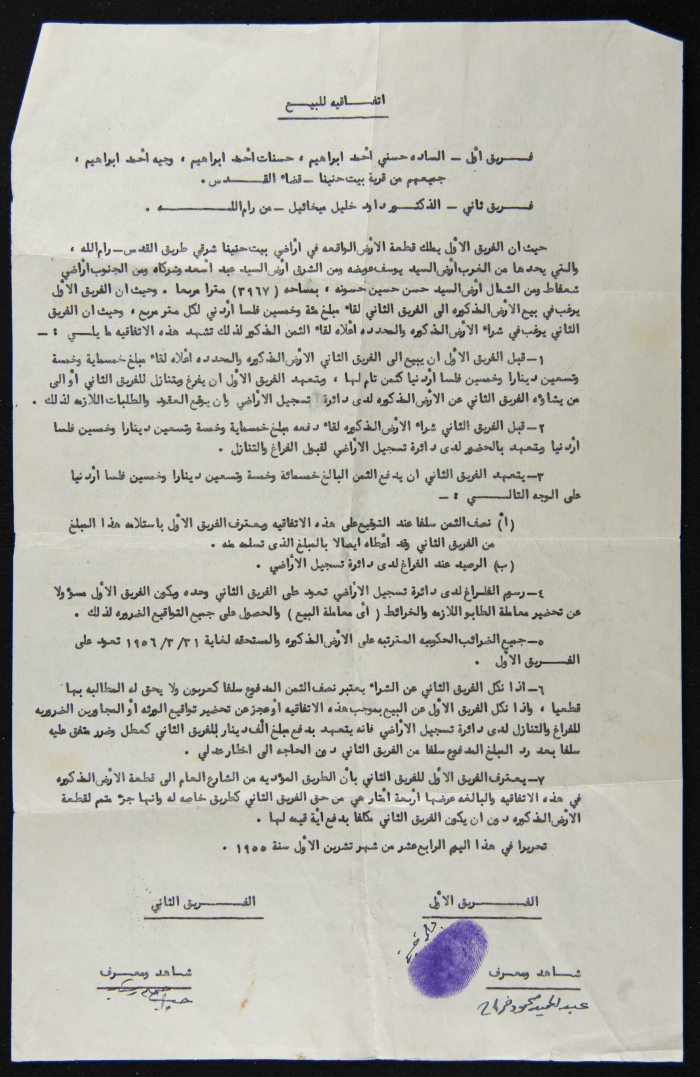 اتفاقيه للبيع
فريق أول – الساده حسني أحمد ابراهيم ، حسنات أحمد ابراهيم ، وجيه أحمد ابراهيم ،
جميعهم من قرية بيت حنينا – قضاء القدس .
فريق ثاني – الدكتور داود خليل ميخائيل – من رام الله .
حيث ان الفريق الأول يملك قطعة الأرض الواقعه في أراضي بيت حنينا شرقي طريق القدس – رام الله ،
والتي يحدها من الغرب أرض السيد يوسف عويضه ومن الشرق أرض السيد عبد أسعد وشركاه ومن الجنوب أراضي
شعفاط ومن الشمال أرض السيد حسن حسين حسونه ، بمساحه ( ٣٩٦٧ ) مترا مربعا . وحيث ان الفريق الأول
يرغب في بيع الأرض المذكوره الى الفريق الثاني لقاء مبلغ مئة وخمسين فلسا أردني لكل متر مربع ، وحيث ان الفريق
الثاني يرغب في شراء الأرض المذكوره والمحدده أعلاه لقاء الثمن المذكور لذلك تشهد هذه الاتفاقيه ما يلي : –
١– قبل الفريق الأول ان يبيع الى الفريق الثاني الأرض المذكوره والمحدده أعلاه لقاء مبلغ خمسماية وخمسة
وتسعين دينارا وخمسين فلسا أردنيا كثمن تام لها ، ويتعهد الفريق الأول ان يفرغ ويتنازل للفريق الثاني أو الى
من يشاؤه الفريق الثاني عن الأرض المذكوره لدى دائرة تسجيل الأراضي وان يوقع العقود والطلبات اللازمه لذلك .
٢– قبل الفريق الثاني شراء الأرض المذكوره لقاء دفعه مبلغ خمسماية وخمسة وتسعين دينارا وخمسين فلسا
أردنيا ويتعهد بالحضور لدى دائرة تسجيل الأراضي لقبول الفراغ والتنازل .
٣– يتعهد الفريق الثاني ان يدفع الثمن البالغ خمسمائة وخمسة وتسعين دينارا وخمسين فلسا أردنيا
على الوجه التالي : –
(أ) نصف الثمن سلفا عند التوقيع على هذه الاتفاقيه ويعترف الفريق الأول باستلامه هذا المبلغ
من الفريق الثاني وقد أعطاه ايصالا بالمبلغ الذى تسلمه منه .
(ب) الرصيد عند الفراغ لدى دائرة تسجيل الأراضي .
٤– رسوم الفراغ لدى دائرة تسجيل الأراضي تعود على الفريق الثاني وحده ويكون الفريق الأول مسؤولا
عن تحضير معاملة الطابو اللازمه والخرائط ( أى معاملة البيع ) والحصول على جميع التواقيع الضروره لذلك .
٥– جميع الضرائب الحكوميه المترتبه على الأرض المذكوره والمستحقه لغاية ٣١/٣/١٩٥٦ تعود على
الفريق الأول .
٦– اذا نكل الفريق الثاني عن الشراء يعتبر نصف الثمن المدفوع سلفا كعربون ولا يحق له المطالبه بها
قطعيا ، واذا نكل الفريق الأول عن البيع بموجب هذه الاتفاقيه أو عجز عن تحضير تواقيع الورثه أو المجاورين الضروريه
للفراغ والتنازل لدى دائرة تسجيل الأراضي فانه يتعهد بدفع مبلغ ألف دينار للفريق الثاني كعطل وضرر متفق عليه
سلفا بعد رد المبلغ المدفوع سلفا من الفريق الثاني دون الحاجه الى اخطار عدلي .
٧– يعترف الفريق الأول للفريق الثاني بأن الطريق المؤديه من الشارع العام الى قطعة الأرض المذكوره
في هذه الاتفاقيه والبالغه عرضها أربعة أمتار هي من حق الفريق الثاني كطريق خاصه له وانها جزء متمم لقطعة
الأرض المذكوره دون ان يكون الفريق الثاني مكلفا بدفع أية قيمه لها .
تحريرا في هذا اليوم الرابع عشر من شهر تشرين الأول سنة ١٩٥٥ .
الفريق الأول
الفريق الثاني
شاهد ومعرف
شاهد ومعرف
عبد الحميد محمود